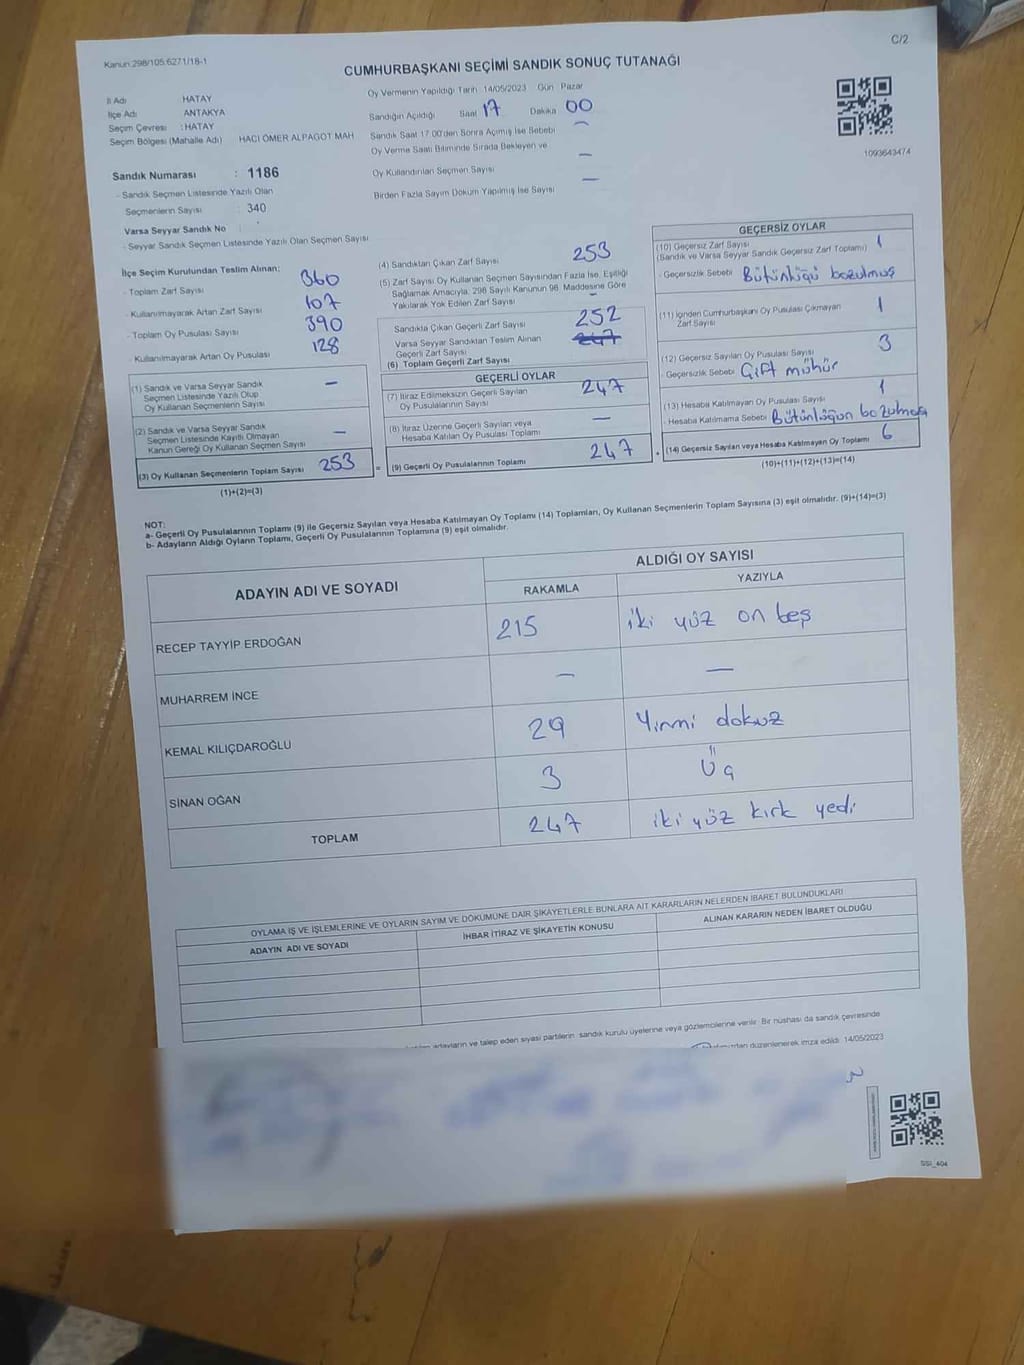 C/2
Kanun:298/105:6271/18-1
CUMHURBAŞKANI SEÇİMİ SANDIK SONUÇ TUTANAĞI
İl Adı HATAY
İlçe Adı ANTAKYA
Seçim Çevresi : HATAY
Seçim Bölgesi (Mahalle Adı) HACI ÖMER ALPAGOT MAH
Sandık Numarası : 1186
- Sandık Seçmen Listesinde Yazılı Olan
Seçmenlerin Sayısı : 340
Varsa Seyyar Sandık No :
- Seyyar Sandık Seçmen Listesinde Yazılı Olan Seçmen Sayısı
Oy Vermenin Yapıldığı Tarih 14/05/2023 Gün Pazar
Sandığın Açıldığı Saat 17 Dakika 00
Sandık Saat 17.00'den Sonra Açılmış İse Sebebi —
Oy Verme Saati Bitiminde Sırada Bekleyen ve
Oy Kullandırılan Seçmen Sayısı —
Birden Fazla Sayım Döküm Yapılmış İse Sayısı —
1093643474
İlçe Seçim Kurulundan Teslim Alınan:
- Toplam Zarf Sayısı 360
- Kullanılmayarak Artan Zarf Sayısı 107
- Toplam Oy Pusulası Sayısı 390
- Kullanılmayarak Artan Oy Pusulası 128
(1) Sandık ve Varsa Seyyar Sandık
Seçmen Listesinde Yazılı Olup
Oy Kullanan Seçmenlerin Sayısı —
(2) Sandık ve Varsa Seyyar Sandık
Seçmen Listesinde Kayıtlı Olmayan
Kanun Gereği Oy Kullanan Seçmen Sayısı —
(3) Oy Kullanan Seçmenlerin Toplam Sayısı 253
(1)+(2)=(3)
(4) Sandıktan Çıkan Zarf Sayısı 253
(5) Zarf Sayısı Oy Kullanan Seçmen Sayısından Fazla İse, Eşitliği
Sağlamak Amacıyla, 298 Sayılı Kanunun 98. Maddesine Göre
Yakılarak Yok Edilen Zarf Sayısı —
Sandıkta Çıkan Geçerli Zarf Sayısı 252
Varsa Seyyar Sandıktan Teslim Alınan
Geçerli Zarf Sayısı 247
(6) Toplam Geçerli Zarf Sayısı
GEÇERLİ OYLAR
(7) İtiraz Edilmeksizin Geçerli Sayılan
Oy Pusulalarının Sayısı 247
(8) İtiraz Üzerine Geçerli Sayılan veya
Hesaba Katılan Oy Pusulası Toplamı —
= (9) Geçerli Oy Pusulalarının Toplamı 247
GEÇERSİZ OYLAR
(10) Geçersiz Zarf Sayısı 1
(Sandık ve Varsa Seyyar Sandık Geçersiz Zarf Toplamı)
- Geçersizlik Sebebi Bütünlüğü bozulmuş
(11) İçinden Cumhurbaşkanı Oy Pusulası Çıkmayan
Zarf Sayısı 1
(12) Geçersiz Sayılan Oy Pusulası Sayısı 3
- Geçersizlik Sebebi Çift mühür
(13) Hesaba Katılmayan Oy Pusulası Sayısı 1
- Hesaba Katılmama Sebebi Bütünlüğün bozulması
+ (14) Geçersiz Sayılan veya Hesaba Katılmayan Oy Toplamı 6
(10)+(11)+(12)+(13)=(14)
NOT:
a- Geçerli Oy Pusulalarının Toplamı (9) ile Geçersiz Sayılan veya Hesaba Katılmayan Oy Toplamı (14) Toplamları, Oy Kullanan Seçmenlerin Toplam Sayısına (3) eşit olmalıdır. (9)+(14)=(3)
b- Adayların Aldığı Oyların Toplamı, Geçerli Oy Pusulalarının Toplamına (9) eşit olmalıdır.
ADAYIN ADI VE SOYADI ALDIĞI OY SAYISI
RAKAMLA YAZIYLA
RECEP TAYYİP ERDOĞAN 215 iki yüz on beş
MUHARREM İNCE — —
KEMAL KILIÇDAROĞLU 29 Yirmi dokuz
SİNAN OĞAN 3 Üç
TOPLAM 247 iki yüz kırk yedi
OYLAMA İŞ VE İŞLEMLERİNE VE OYLARIN SAYIM VE DÖKÜMÜNE DAİR ŞİKAYETLERLE BUNLARA AİT KARARLARIN NELERDEN İBARET BULUNDUKLARI
ADAYIN ADI VE SOYADI İHBAR İTİRAZ VE ŞİKAYETİN KONUSU ALINAN KARARIN NEDEN İBARET OLDUĞU
adayların ve talep eden siyasi partilerin sandık kurulu üyelerine veya gözlemcilerine verilir. Bir nüshası da sandık çevresinde
düzenlenerek imza edildi. 14/05/2023
SSI_404